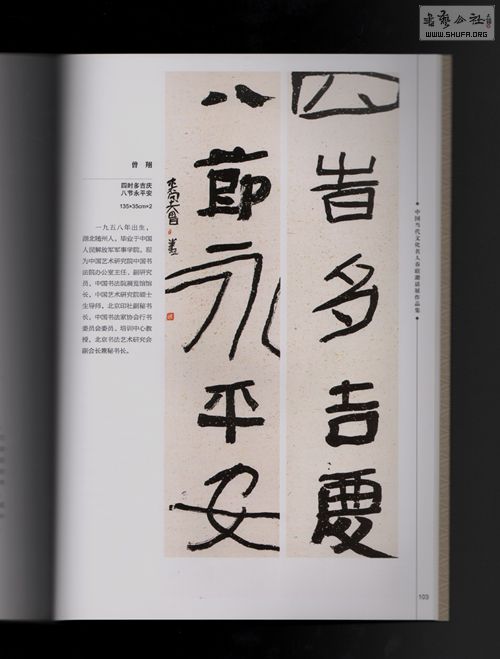 書藝公社
WWW.SHUFA.ORG
曾 翔
四时多吉庆
八节永平安
135×35cm×2
一九五八年出生，
湖北随州人，毕业于中国
人民解放军军事学院。现
为中国艺术研究院中国书
法院办公室主任、副研究
员，中国书法院展览馆馆
长，中国艺术研究院硕士
生导师，北京印社副秘书
长，中国书法家协会行书
委员会委员、培训中心教
授，北京书法艺术研究会
副会长兼秘书长。
四旹多吉慶
八節永平安
中国当代文化名人春联邀请展作品集
103